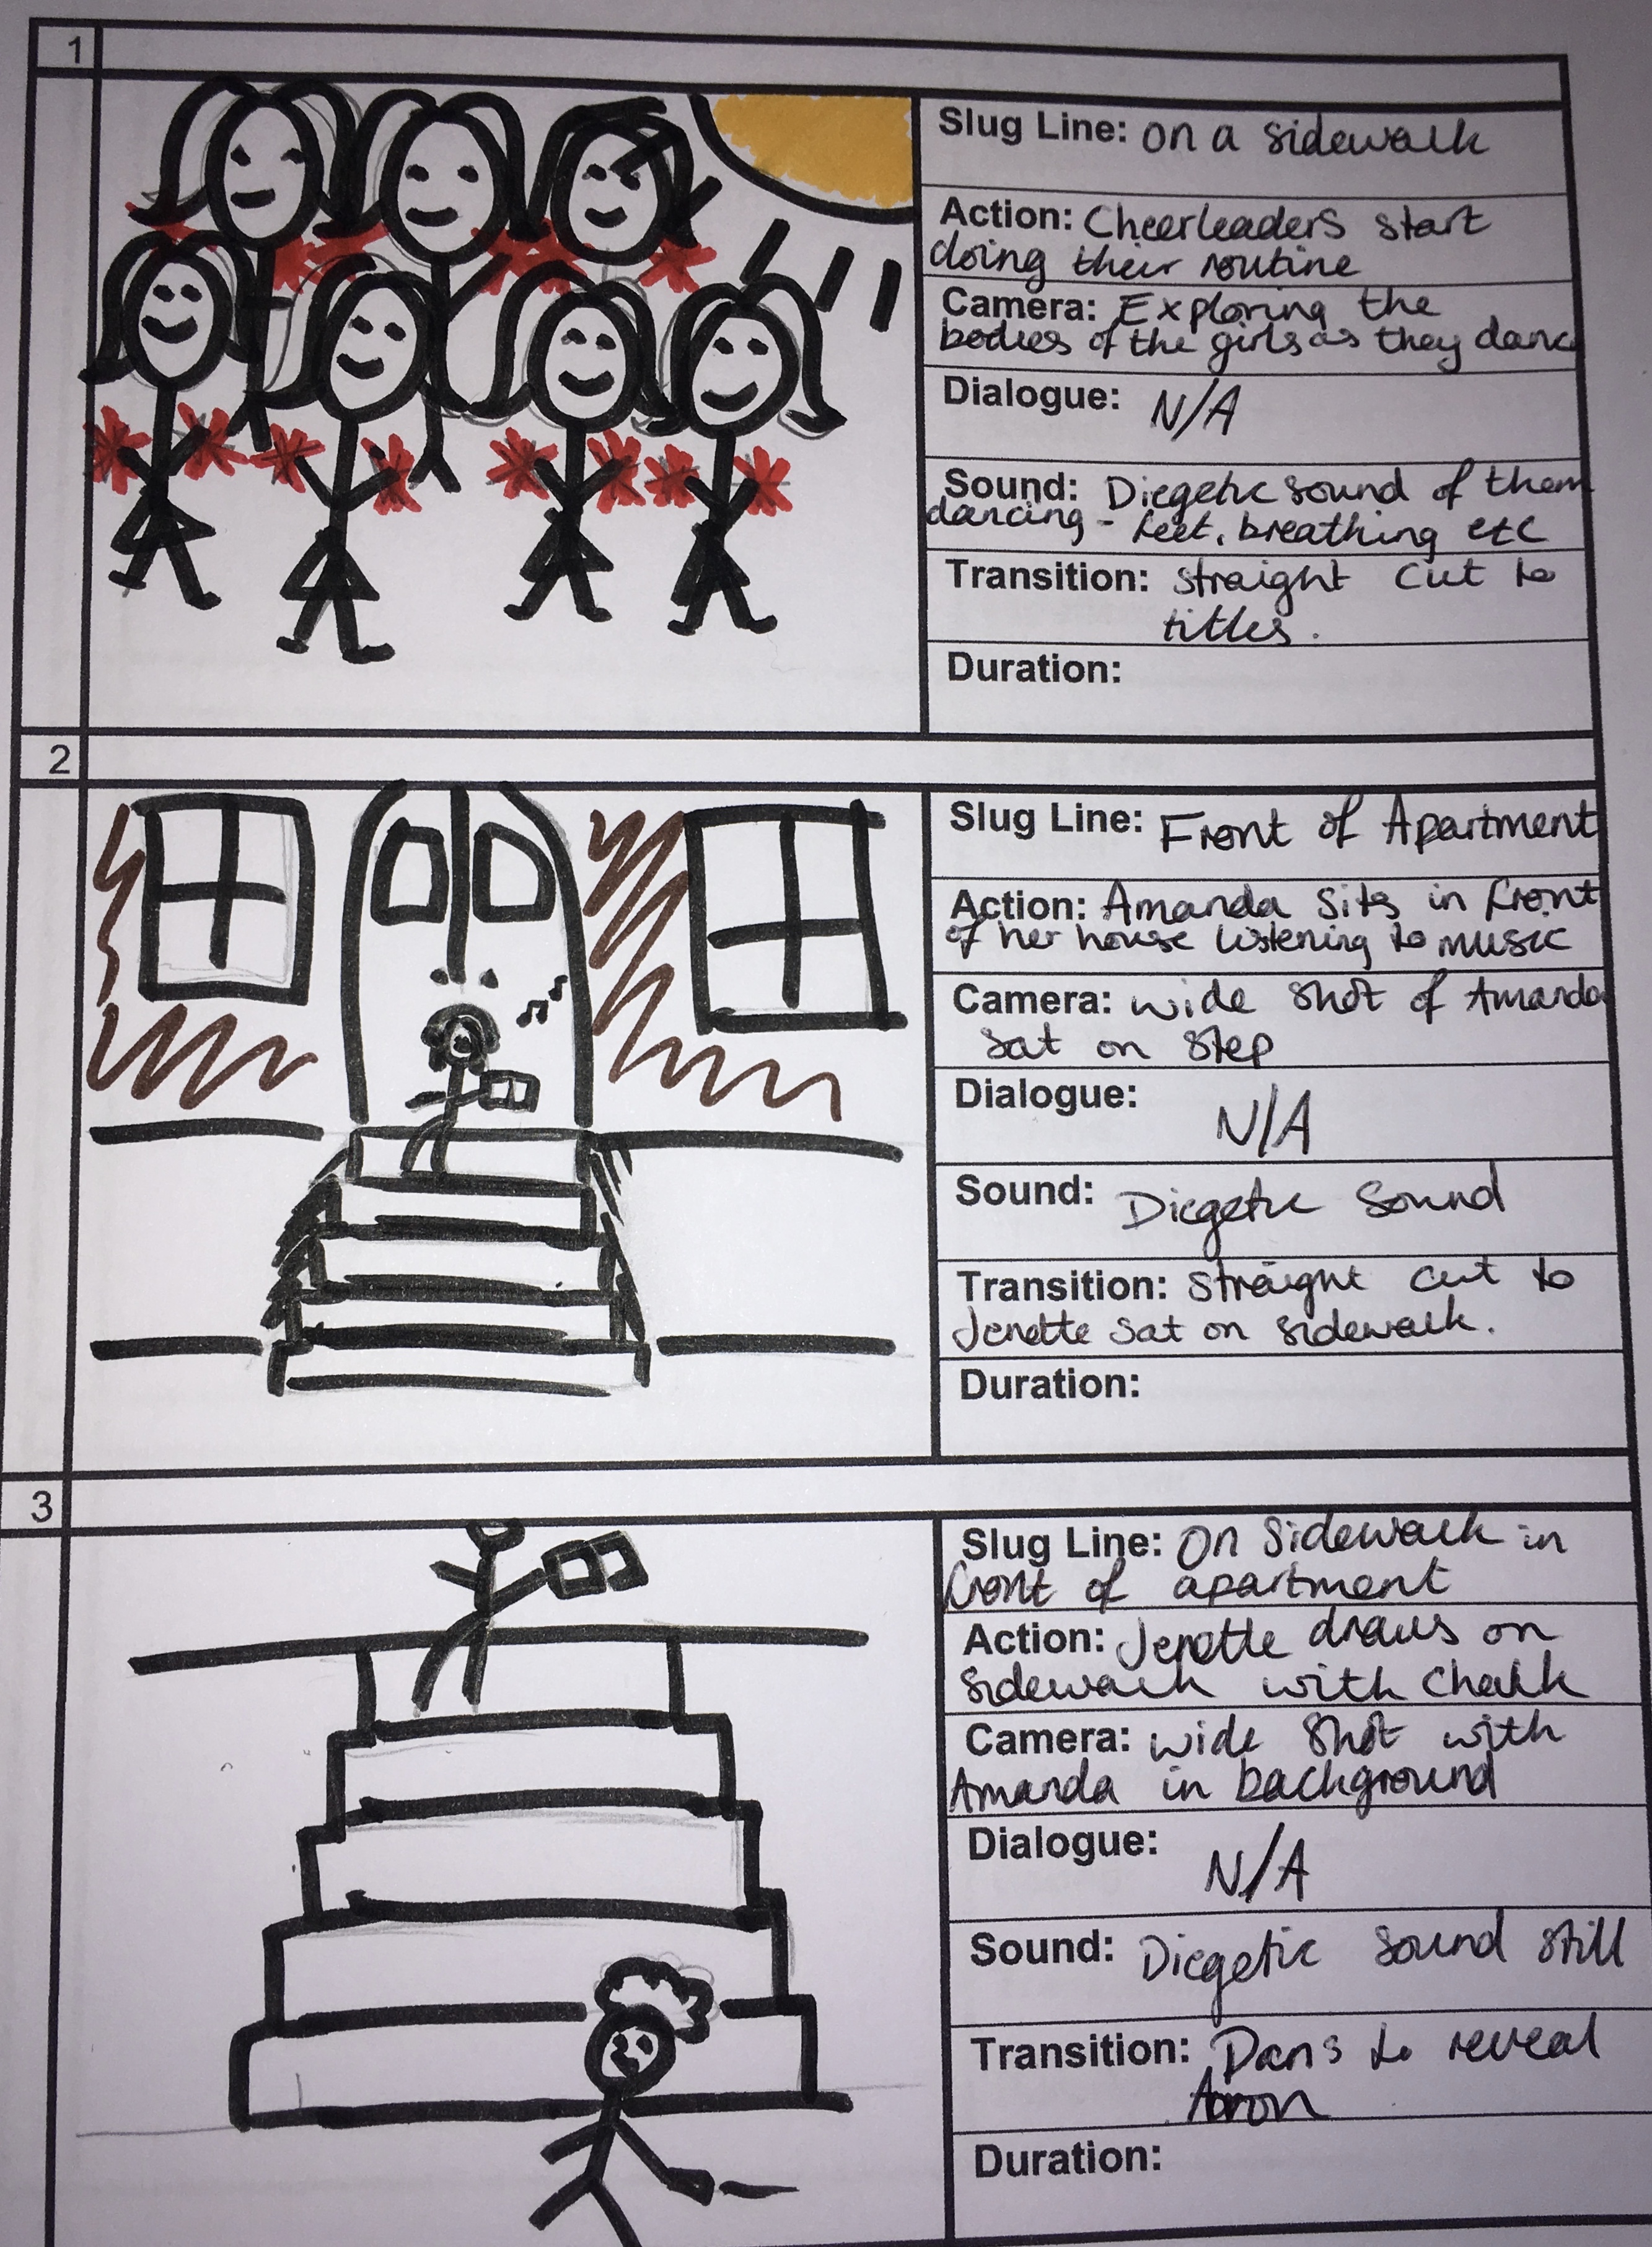 1
Slug Line: on a sidewalk
Action: Cheerleaders start
doing their routine
Camera: Exploring the
bodies of the girls as they danc
Dialogue: N/A
Sound: Diegetic sound of them
dancing - feet, breathing etc
Transition: straight cut to
titles.
Duration:
2
Slug Line: Front of Apartment
Action: Amanda sits in front
of her house listening to music
Camera: wide shot of Amanda
sat on step
Dialogue:
N/A
Sound: Diegetic sound
Transition: straight cut to
Jenette sat on sidewalk.
Duration:
3
Slug Line: On sidewalk in
front of apartment
Action: Jenette draws on
sidewalk with chalk
Camera: wide shot with
Amanda in background
Dialogue:
N/A
Sound: Diegetic sound still
Transition: Pans to reveal
Aaron
Duration: